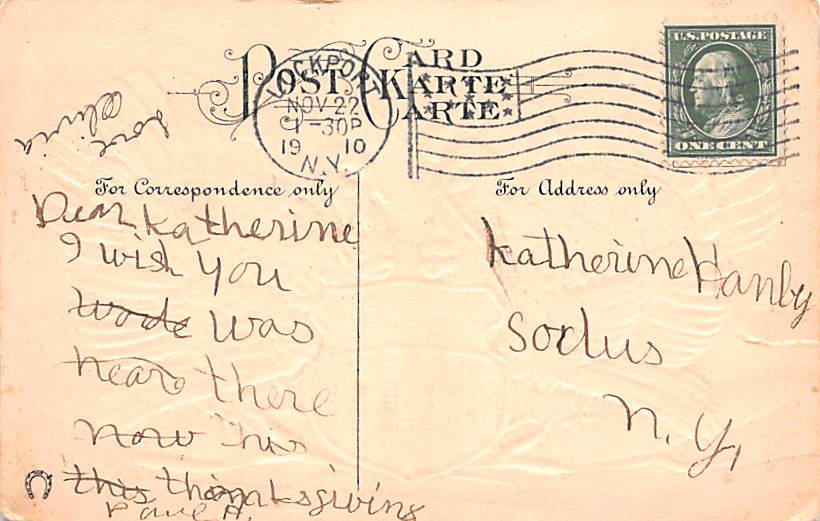 POST CARD
KARTE
CARTE
LOCKPORT
NOV 22
1-30P
19 10
N.Y.
U.S. POSTAGE
ONE CENT
Love
Olivia
For Correspondence only
Dear Katherine
I wish you
was
there
this thanksgiving
For Address only
Katherine Hanby
Sodus
N. Y,